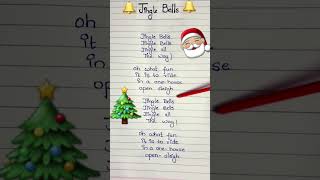 Jingle Bells
Jingle Bells
Jingle Bells
Jingle all
The way!
oh what fun
it is to ride
in a one-house
open sleigh
Jingle Bells
Jingle Bells
Jingle all
The way!
oh what fun
it is to ride
in a one-house
open-sleigh